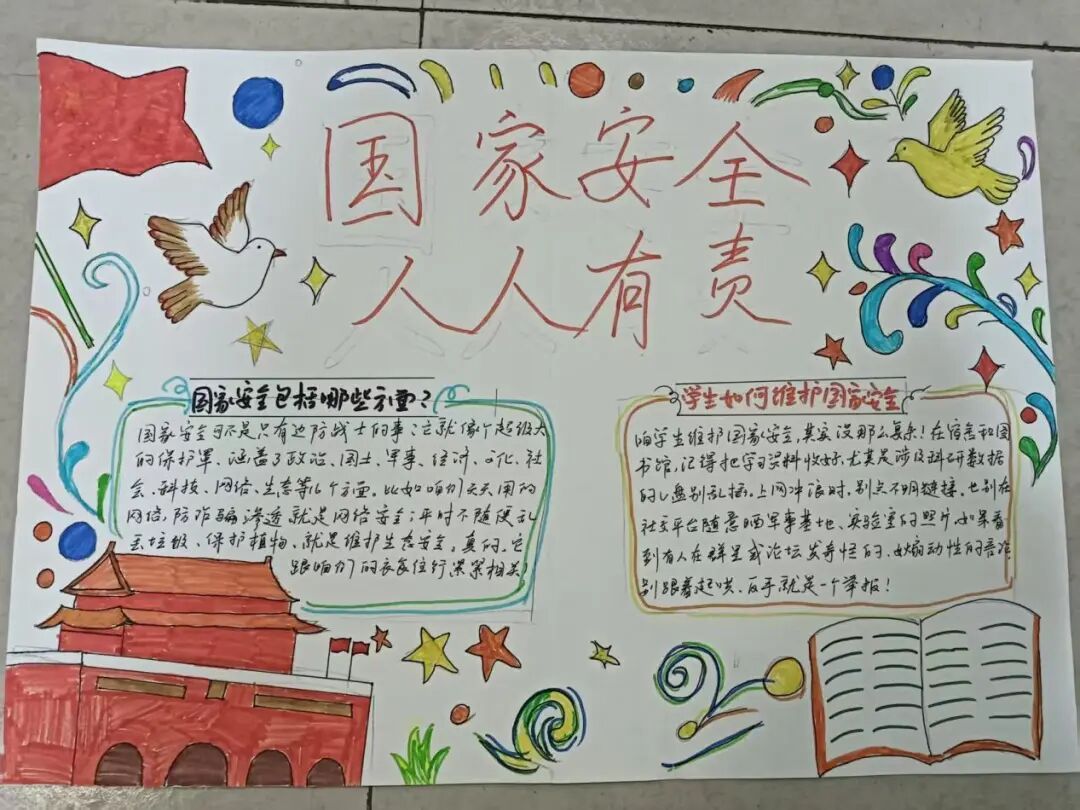 国家安全
人人有责
国家安全包括哪些方面？
国家安全可不是只有边防战士的事！它就像个超级大
的保护罩、涵盖了政治、国土、军事、经济、文化、社
会、科技、网络、生态等16个方面。比如咱们天天用的
网络，防诈骗渗透就是网络安全；平时不随便乱
丢垃圾、保护植物、就是维护生态安全。真的，它
跟咱们的衣食住行紧紧相关！
学生如何维护国家安全
咱学生维护国家安全，其实没那么复杂！在宿舍和图
书馆，记得把学习资料收好，尤其是涉及科研数据
的U盘别乱插。上网冲浪时，别点不明链接，也别在
社交平台随意晒军事基地、实验室的照片，如果看
到有人在群里或论坛发奇怪的、煽动性的言论
别跟着起哄、反手就是一个举报！